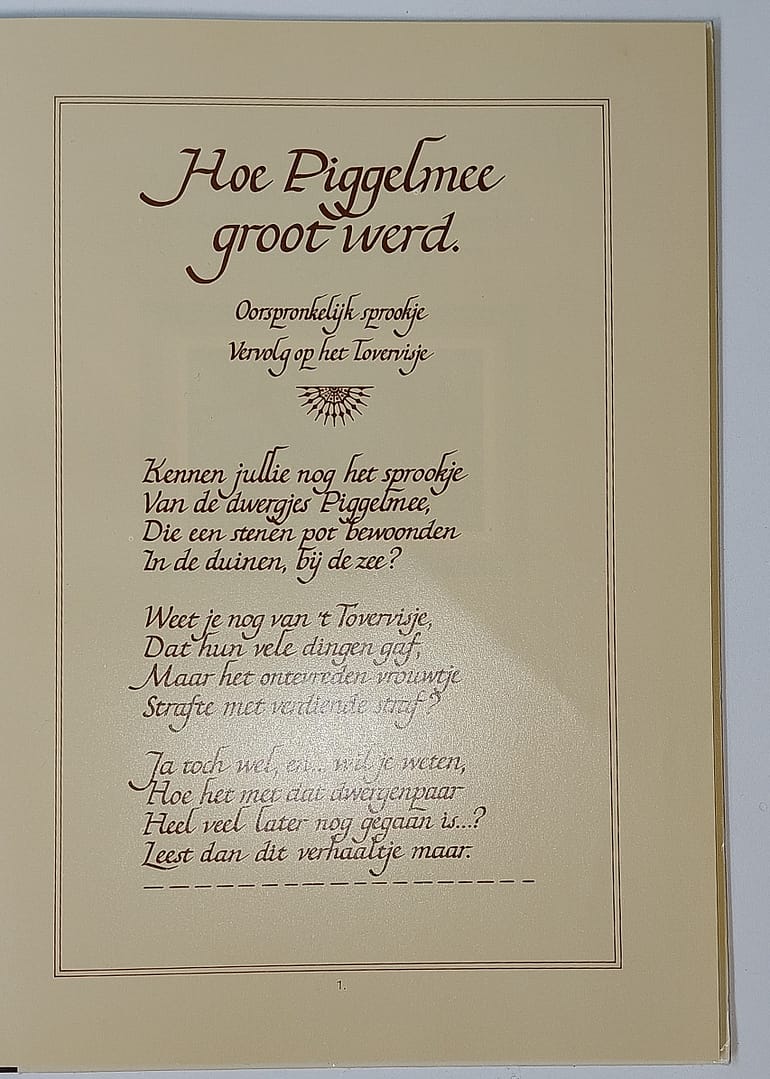 Hoe Piggelmee
groot werd.
Oorspronkelijk sprookje
Vervolg op het Tovervisje
Kennen jullie nog het sprookje
Van de dwergjes Piggelmee,
Die een stenen pot bewoonden
In de duinen, bij de zee?
Weet je nog van 't Tovervisje,
Dat hun vele dingen gaf,
Maar het ontevreden vrouwtje
Strafte met verdiende straf?
Ja toch wel, en... wil je weten,
Hoe het met dat dwergenpaar
Heel veel later nog gegaan is...?
Leest dan dit verhaaltje maar.
1.